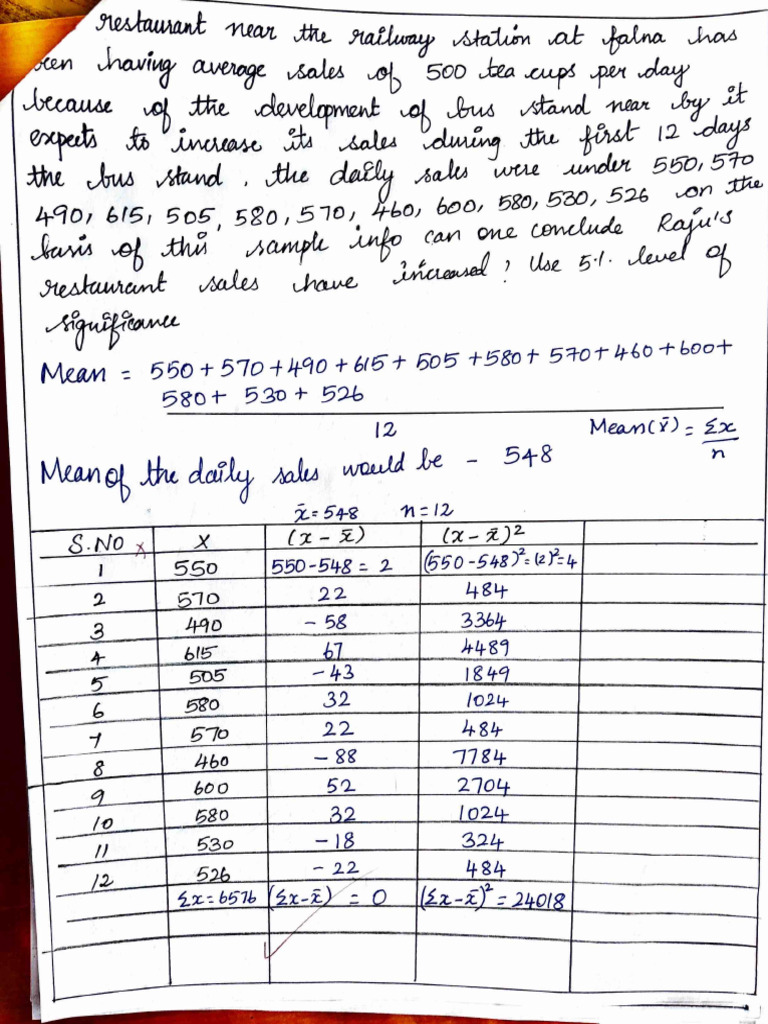 restaurant near the railway station at falna has
been having average sales of 500 tea cups per day
because of the development of bus stand near by it
expects to increase its sales during the first 12 days
the bus stand. the daily sales were under 550, 570
490, 615, 505, 580, 570, 460, 600, 580, 530, 526 on the
basis of this sample info can one conclude Raju's
restaurant sales have increased? Use 5% level of
significance
Mean = 550 + 570 + 490 + 615 + 505 + 580 + 570 + 460 + 600 +
580 + 530 + 526
12
Mean (x̄) = Σx
n
Mean of the daily sales would be - 548
x̄ = 548 n = 12
S.NO X (x - x̄) (x - x̄)2
1 550 550 - 548 = 2 (550 - 548)2 = (2)2 = 4
2 570 22 484
3 490 - 58 3364
4 615 67 4489
5 505 - 43 1849
6 580 32 1024
7 570 22 484
8 460 - 88 7784
9 600 52 2704
10 580 32 1024
11 530 - 18 324
12 526 - 22 484
Σx = 6576 (Σx - x̄) = 0 (Σx - x̄)2 = 24018